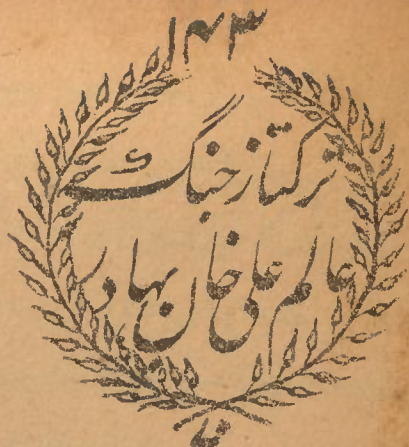 ۱۴۳
ترکتاز جنگ
عالم علی خان بہادر